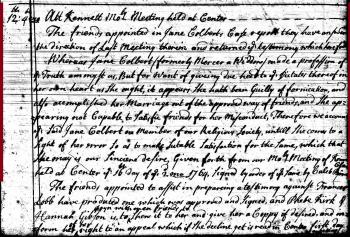 At Kennett Mo. Meeting held at Center
The friend appointed in Jane Colbert's Case report they have
the direction of last Meeting therein and returned testimony which
Whereas Jane Colbert formerly Mercer a Widdow, made a profession of
Truth among us, But for Want of giveing due heed to ye dictates thereof in
her own heart as she ought, it appears She hath been Guilty of fornication, and
also accomplished her Marriage out of the approved way of friends, and She ap=
pearing not Capable to Satisfie friends for her Misconduct, Therefore we
ye said Jane Colbert no Member of our Religious Society, untill She come to a
Sight of her error So as to make Suitable Satisfaction for the Same, which that
She may is our Sincere desire, Given forth from our Mo. Meeting of
held at Center ye 16 day of ye 1764, Signed by order of ye Same by
The friend appointed to assist in preparing a testimony against
Lobb have produced one which was approved and Signed, and Kirk &
Hannah Gibson is to Show it to her and give her a Coppy if desired and in=
form her right to an appeal which if She decline get it read in Center first day